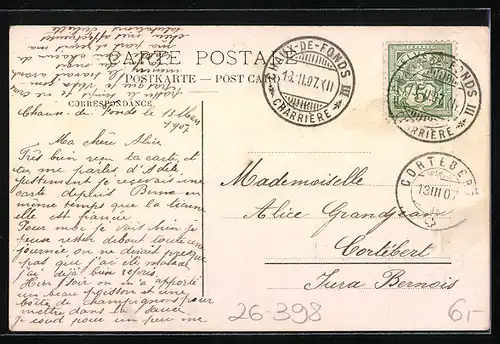 CARTE POSTALE
POSTKARTE — POST CARD
CORRESPONDANCE
Chaux-de-Fonds le 13 Mars
1907
Ma chère Alice
Très bien reçu ta carte, et
tu me parles d'Adèle
justement je recevais une
carte depuis Berne en
même temps que la tienne
elle est fiancée.
Pour moi je vais bien je
peux rester debout toute une
journée on ne dirait presque
pas que j'ai été malade
j'ai déjà bien repris.
Hier soir on m'a apporté
un beau poisson et une
boîte de champignons pour
mettre dans la sauce
je couds pour un peu me
Mademoiselle
Alice Grandjean
Cortébert
Jura Bernois
CHAUX-DE-FONDS III
13.III.07.XII
CHARRIÈRE
CHAUX-DE-FONDS III
CHARRIÈRE
5
CORTÉBERT
13 III 07
26-398
6.-